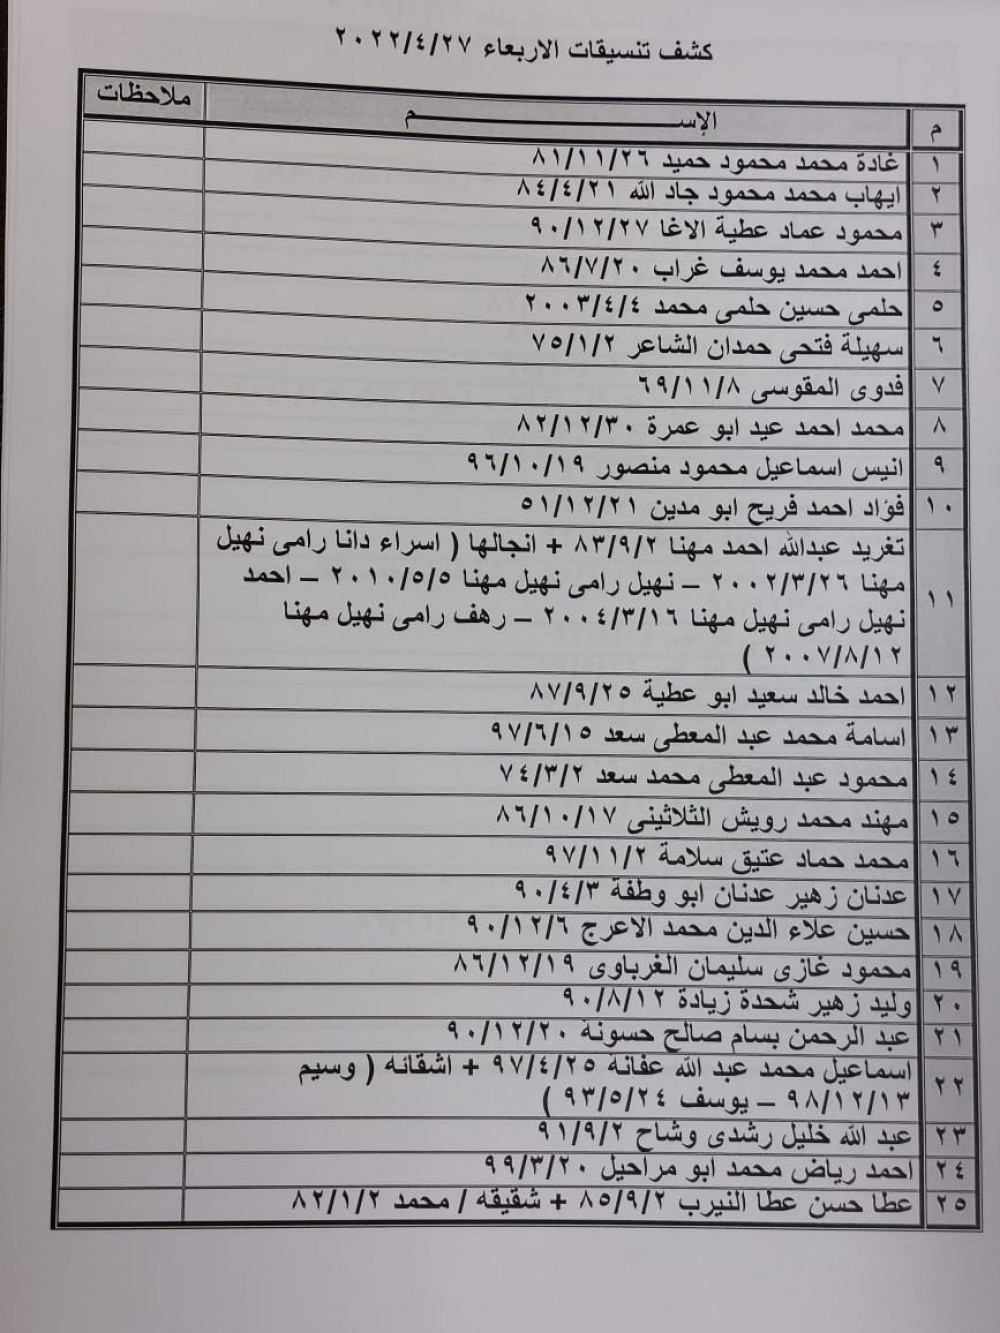 كشف تنسيقات الاربعاء ٢٠٢٢/٤/٢٧
م الإســـــــــم ملاحظات
١ غادة محمد محمود حميد ٨١/١١/٢٦
٢ ايهاب محمد محمود جاد الله ٨٤/٤/٢١
٣ محمود عماد عطية الاغا ٩٠/١٢/٢٧
٤ احمد محمد يوسف غراب ٨٦/٧/٢٠
٥ حلمى حسين حلمى محمد ٢٠٠٣/٤/٤
٦ سهيلة فتحى حمدان الشاعر ٧٥/١/٢
٧ فدوى المقوسى ٦٩/١١/٨
٨ محمد احمد عيد ابو عمرة ٨٢/١٢/٣٠
٩ انيس اسماعيل محمود منصور ٩٦/١٠/١٩
١٠ فؤاد احمد فريح ابو مدين ٥١/١٢/٢١
١١ تغريد عبدالله احمد مهنا ٨٣/٩/٢ + انجالها ( اسراء دانا رامى نهيل
مهنا ٢٠٠٢/٣/٢٦ – نهيل رامى نهيل مهنا ٢٠١٠/٥/٥ – احمد
نهيل رامى نهيل مهنا ٢٠٠٤/٣/١٦ – رهف رامى نهيل مهنا
٢٠٠٧/٨/١٢ )
١٢ احمد خالد سعيد ابو عطية ٨٧/٩/٢٥
١٣ اسامة محمد عبد المعطى سعد ٩٧/٦/١٥
١٤ محمود عبد المعطى محمد سعد ٧٤/٣/٢
١٥ مهند محمد رويش الثلاثينى ٨٦/١٠/١٧
١٦ محمد حماد عتيق سلامة ٩٧/١١/٢
١٧ عدنان زهير عدنان ابو وطفة ٩٠/٤/٣
١٨ حسين علاء الدين محمد الاعرج ٩٠/١٢/٦
١٩ محمود غازى سليمان الغرباوى ٨٦/١٢/١٩
٢٠ وليد زهير شحدة زيادة ٩٠/٨/١٢
٢١ عبد الرحمن بسام صالح حسونة ٩٠/١٢/٢٠
٢٢ اسماعيل محمد عبد الله عفانة ٩٧/٤/٢٥ + اشقائه ( وسيم
٩٨/١٢/١٣ – يوسف ٩٣/٥/٢٤ )
٢٣ عبد الله خليل رشدى وشاح ٩١/٩/٢
٢٤ احمد رياض محمد ابو مراحيل ٩٩/٣/٢٠
٢٥ عطا حسن عطا النيرب ٨٥/٩/٢ + شقيقه / محمد ٨٢/١/٢